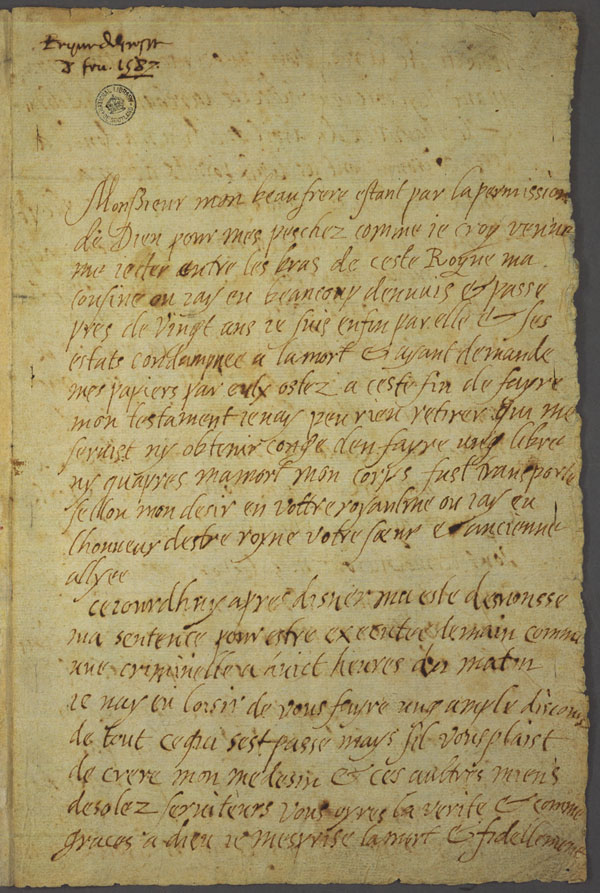 Royne descosse
8 feu. 1587
NATIONAL LIBRARY OF SCOTLAND
Monssieur mon beaufrere estant par la permission
de Dieu pour mes peschez comme ie croy venue
me iecter entre les bras de ceste Royne ma
cousine ou iay eu beaucoup dennuis & passe
pres de vingt ans ie suis enfin par elle & ses
estats condampnee a la mort & ayant demande
mes papiers par eulx ostez a ceste fin de fayre
mon testament ie nay peu rien retirer qui me
seruist ny obtenir conge den fayre ung libre
ny quapres ma mort mon corps fust transporte
sellon mon desir en vottre royaulme ou iay eu
lhonneur destre royne votre sœur & ancienne
allyee
ceiourdhuy apres disner ma este desnonsse
ma sentence pour estre executee demain comme
une criminelle a huict heures du matin
ie nay eu loisir de vous fayre ung ample discours
de tout ce qui sest passe mays sil vous plaist
de crere mon medesin & ces aultres miens
desolez seruiteurs vous oyres la verite & comme
graces a dieu ie mesprise la mort & fidellement